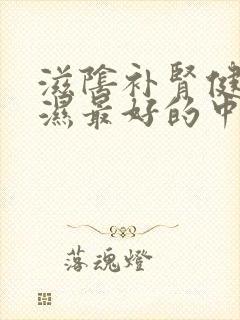 滋陰补肾健
濕最好的中
落魂燈